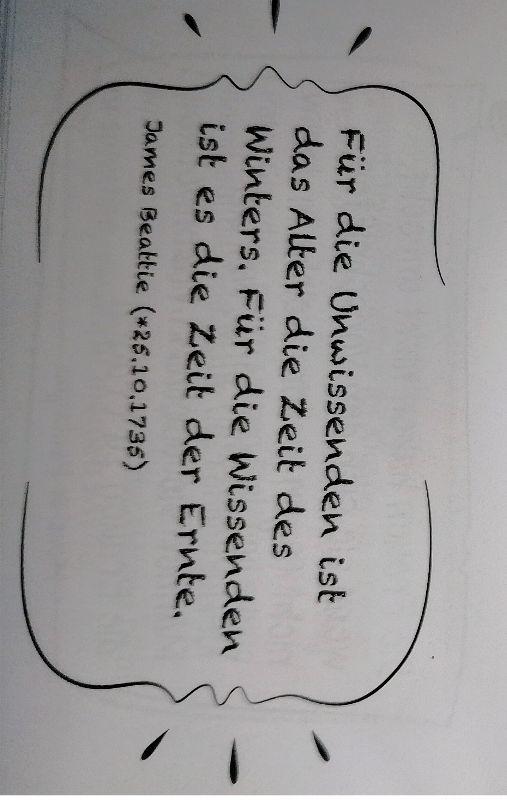 Für die Unwissenden ist
das Alter die Zeit des
Winters. Für die Wissenden
ist es die Zeit der Ernte.
James Beattie (*25.10.1735)